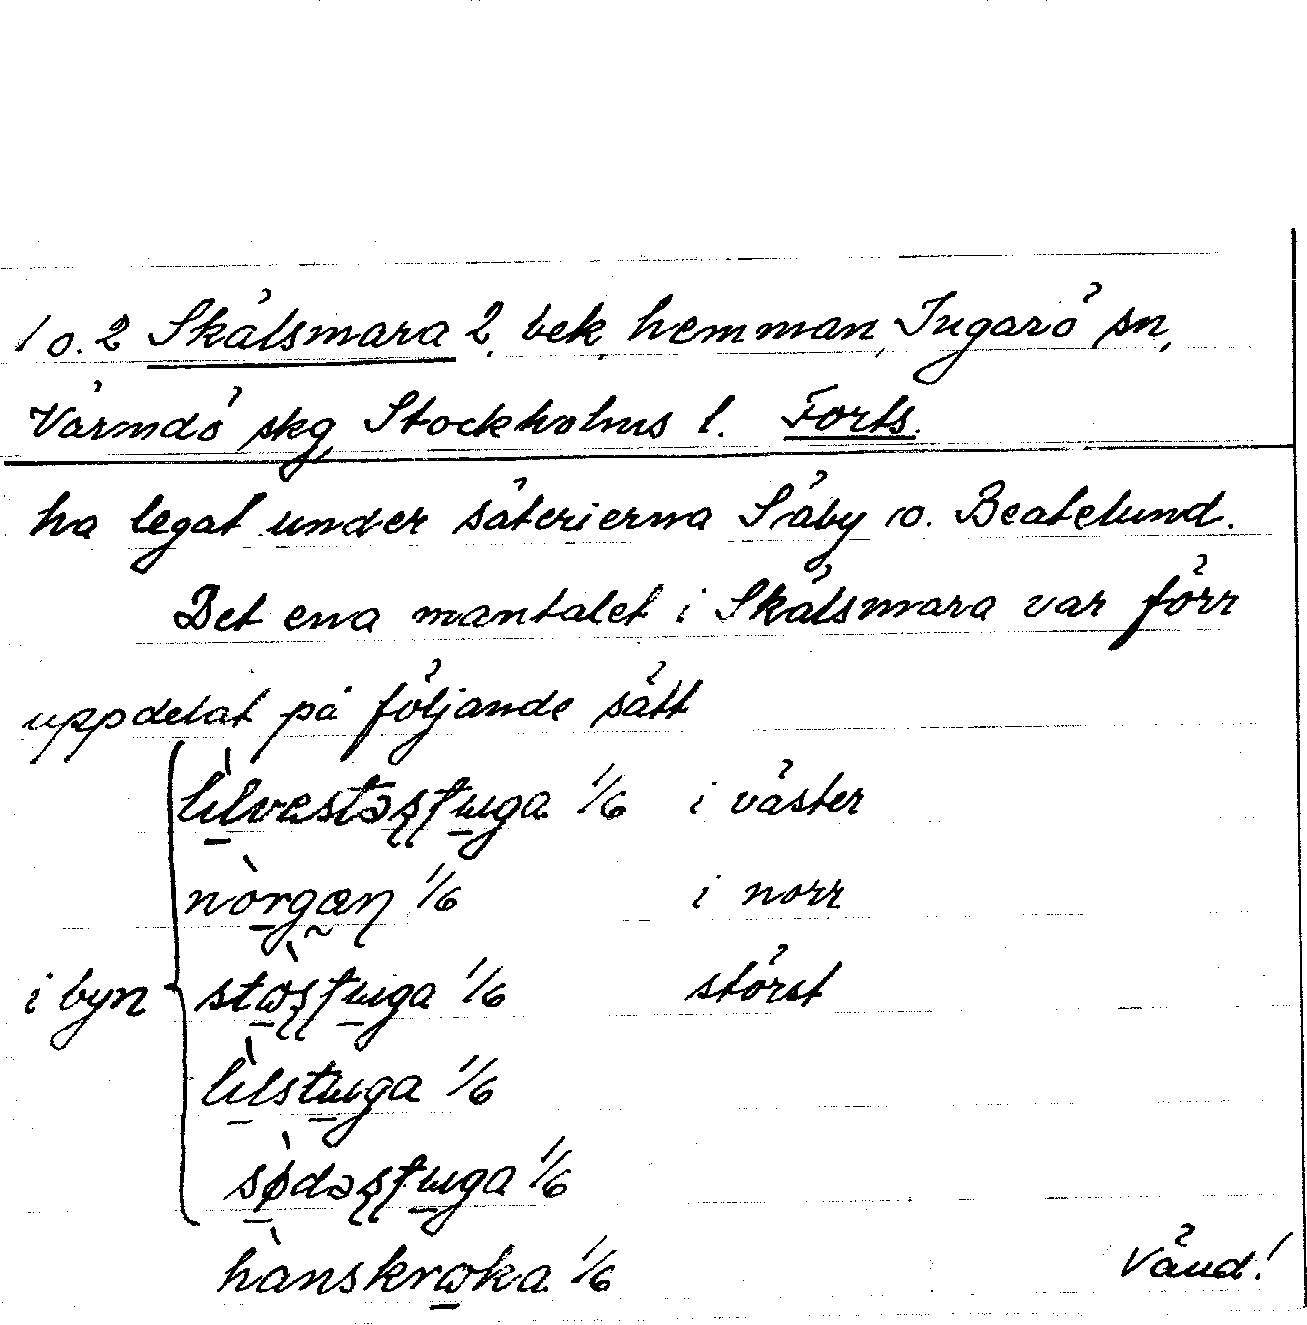 1 o. 2 Skälsmara 2 bek. hemman, Ingarö sn,
Värmdö skg Stockholms l. Forts.
ha legat under säterierna Säby o. Beatelund.
Det ena mantalet i Skälsmara var förr
uppdelat på följande sätt
lìlvestəʂʈɯga 1/6 i väster
nòrgæɳ 1/6 i norr
i byn stɷ̀ʂʈɯga 1/6 störst
lìlstɯga 1/6
sø̀dəʂʈɯga 1/6
hànskrɷka 1/6 Vänd!